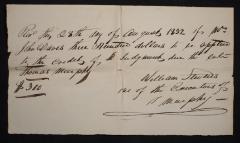 Recd this 28th day of August 1832 of Mr
John Davis three Hundred dollars to be applied
to the credit of the Judgment due the late
Thomas Murphy
$300
William
one of the Executors of
T Murphy